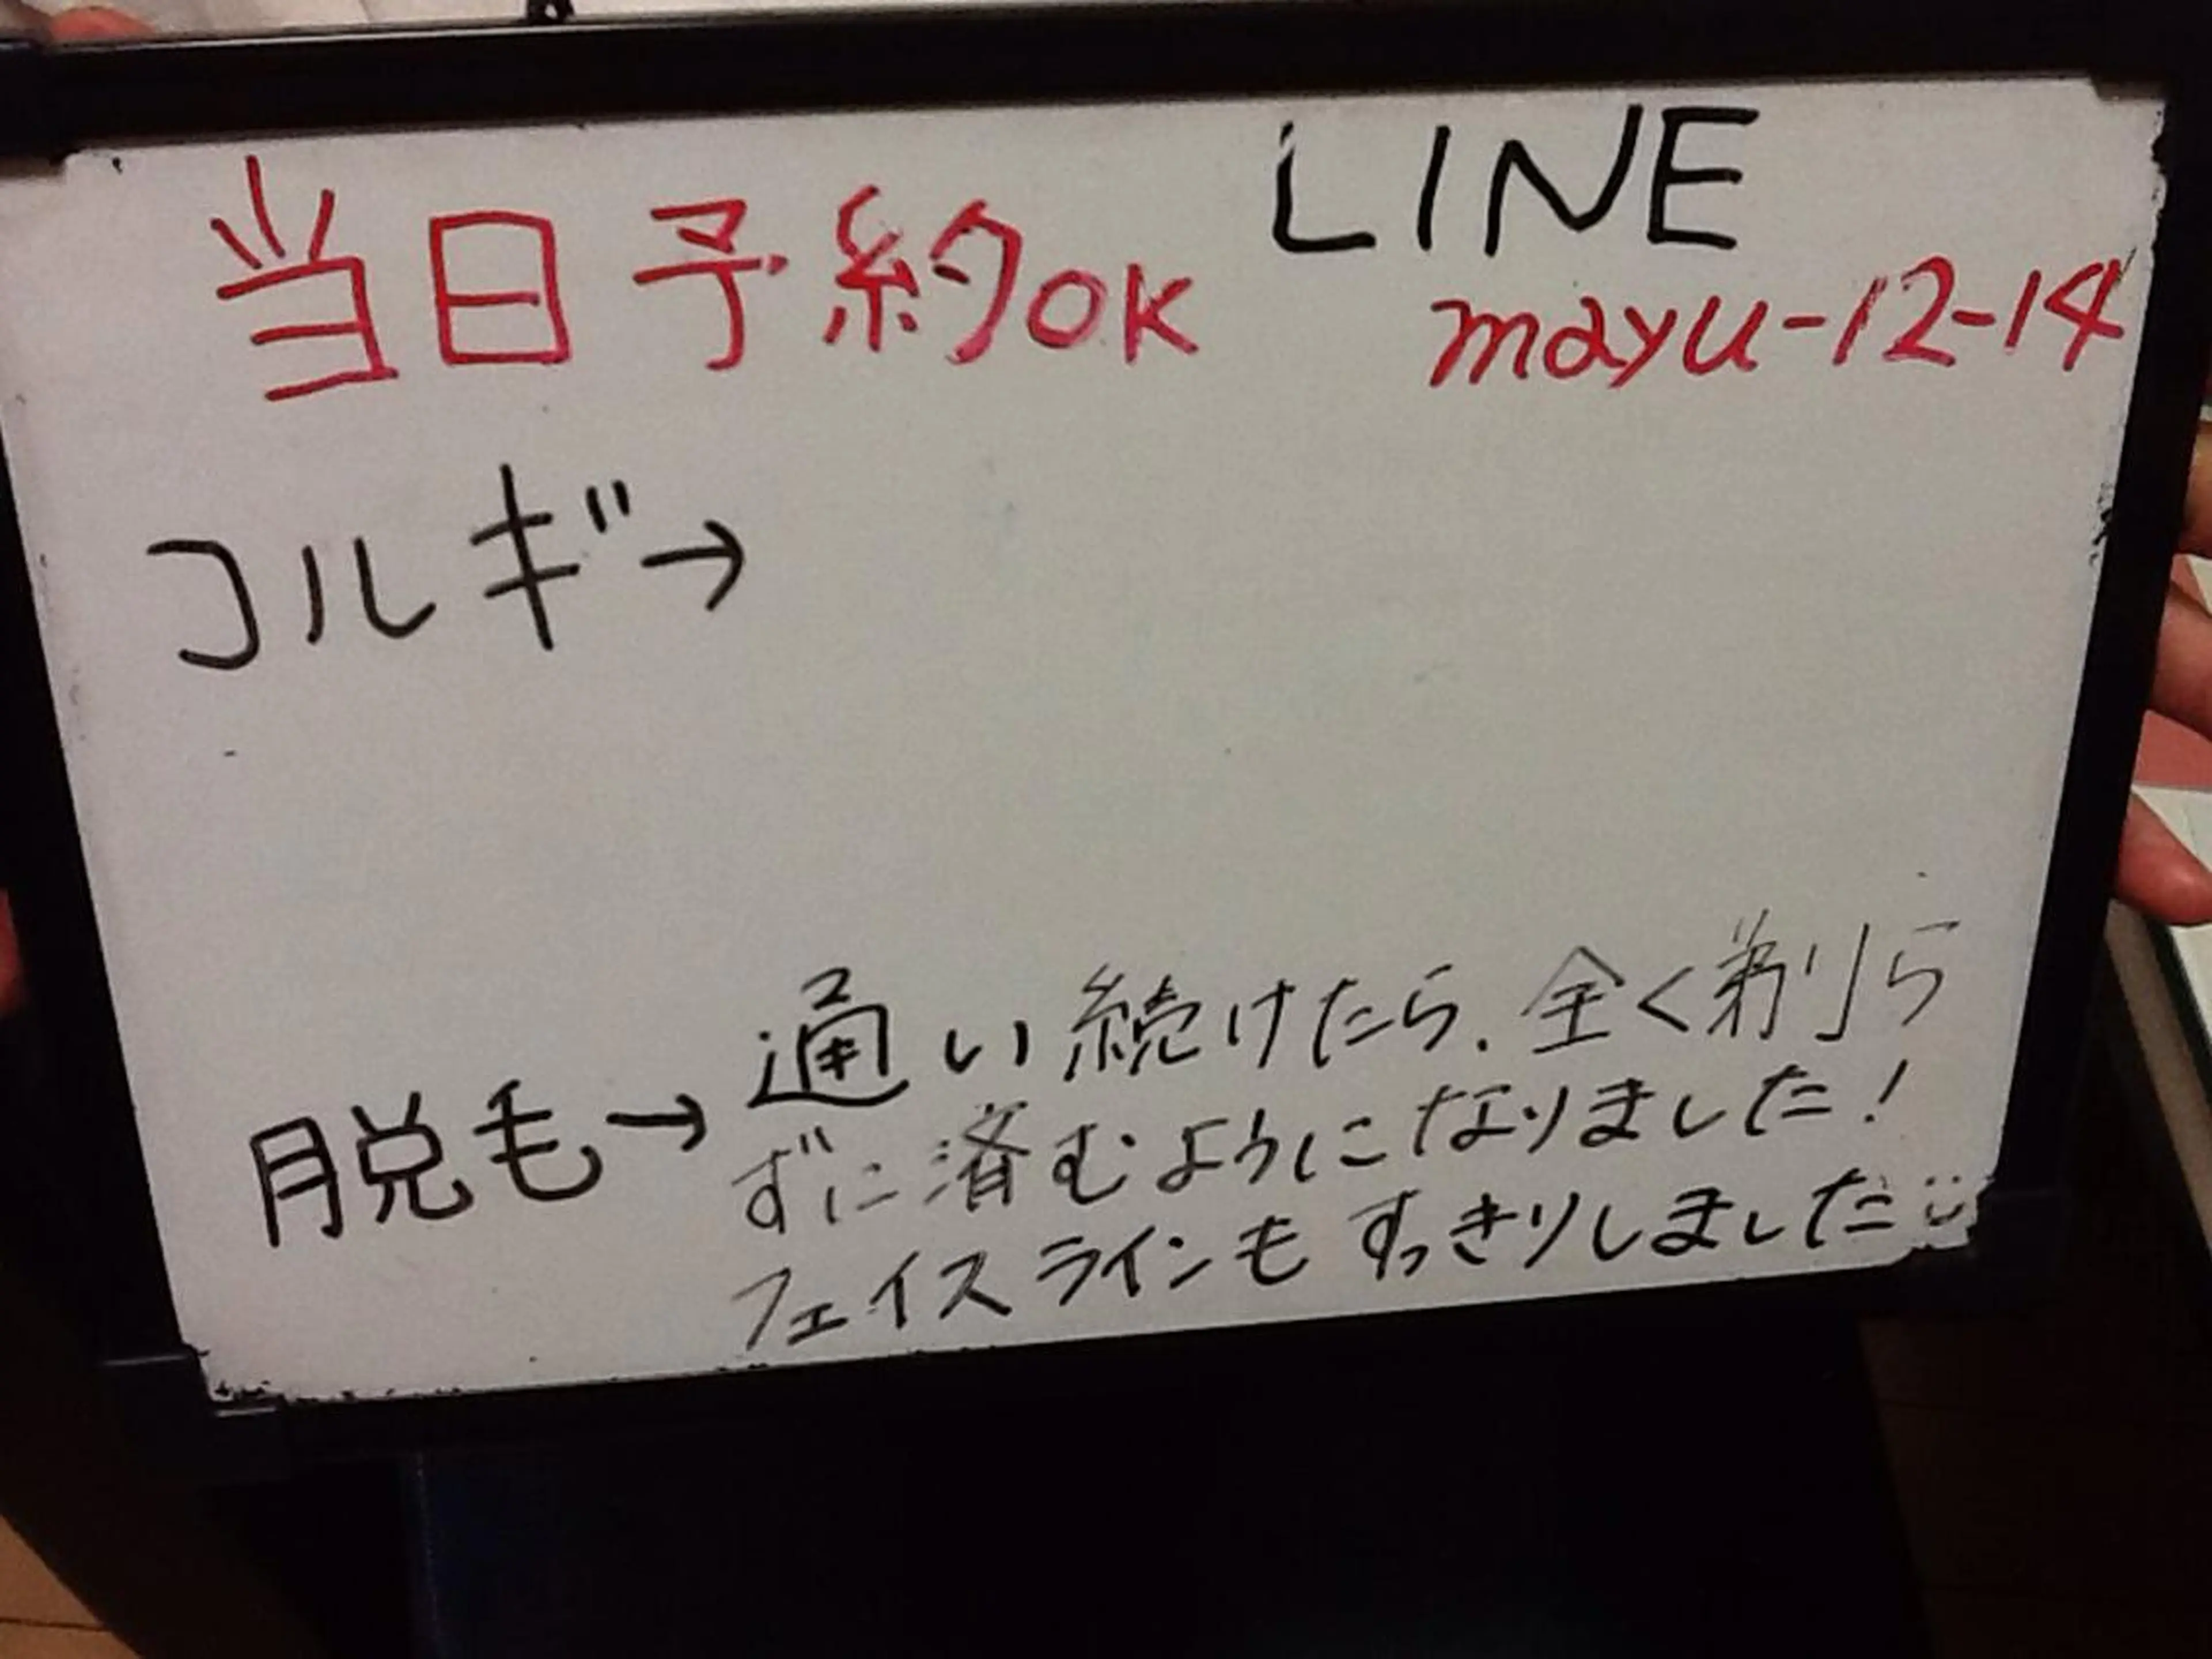 当日予約OK
LINE
mayu-12-14
コルギ→
脱毛→
通い続けたら、全く剃ら
ずに済むようになりました!
フェイスラインもすっきりしました